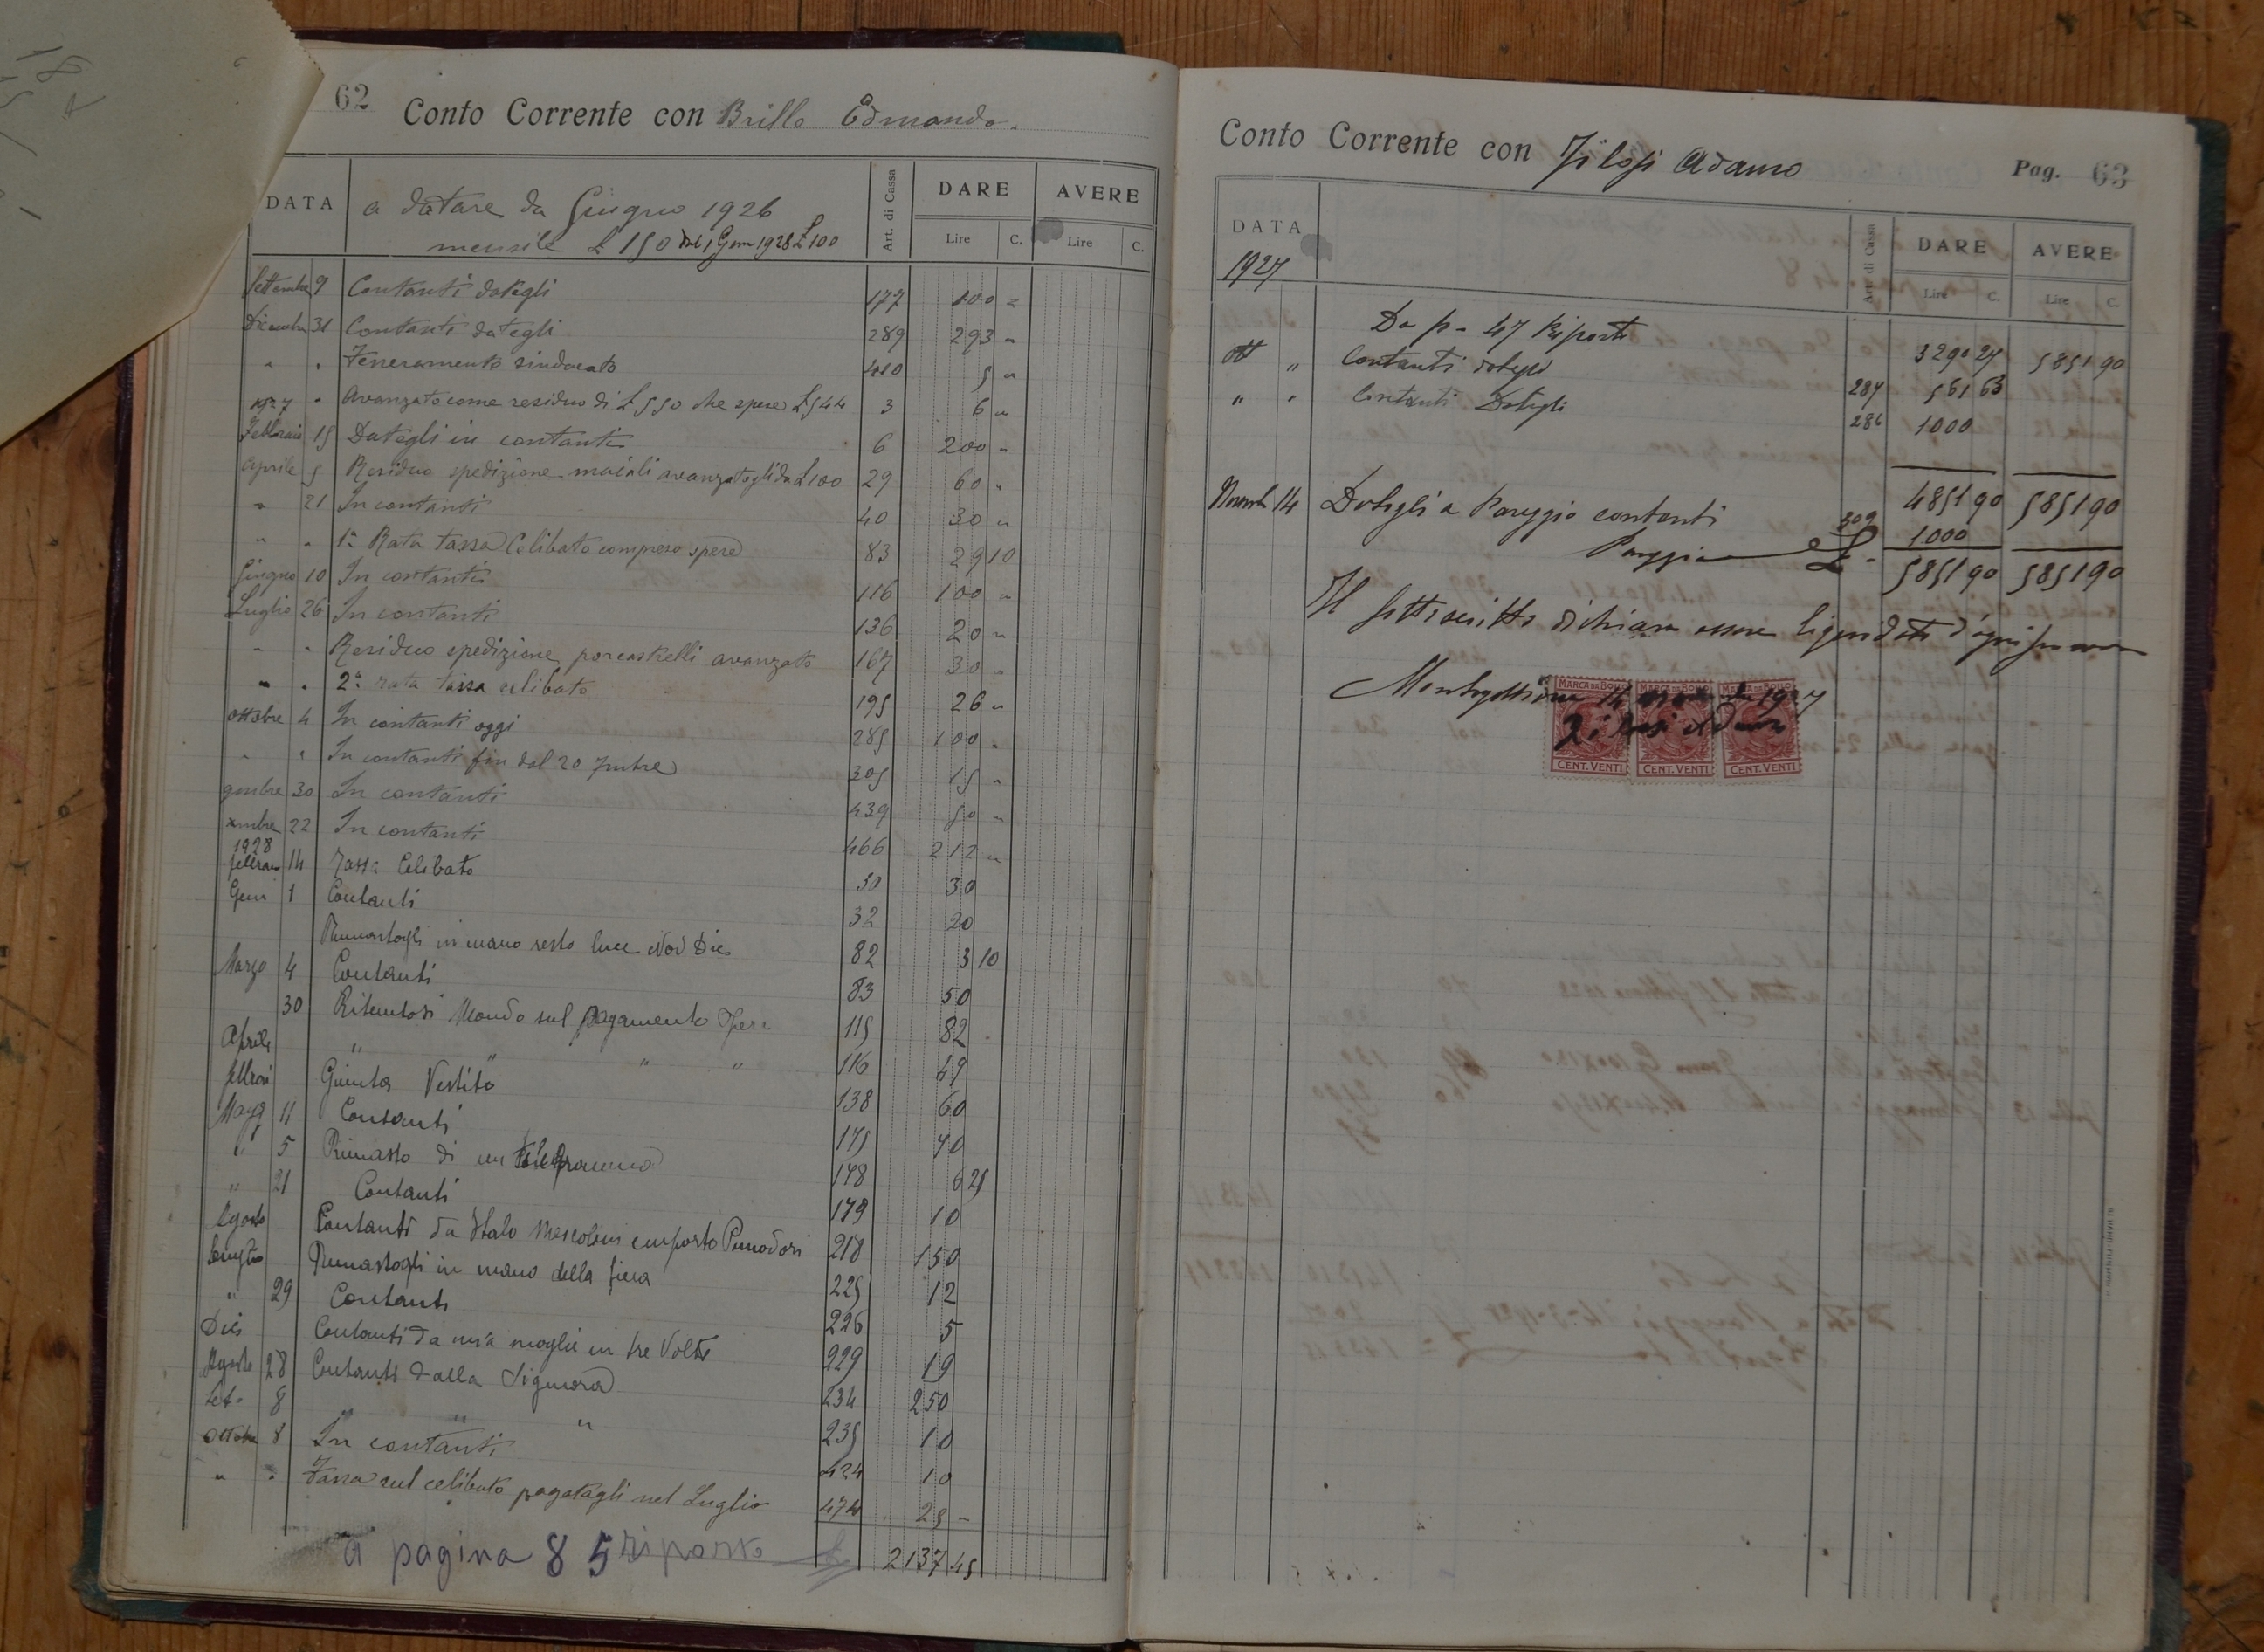 62 Conto Corrente con Brillo Edmondo.
DATA a datare da Giugno 1926 Art. di Cassa DARE AVERE
mensile £ 150 dal 1 Genn 1928 £ 100 Lire C. Lire C.
Settembre 9 Contanti dategli 177 100 =
Dicembre 31 Contanti dategli 289 293 "
" " Tesseramento sindacato 5 "
1927 " Avanzato come residuo di £ 550 che spese £ 544 3 6 "
Febbraio 15 Dategli in contanti 6 200 "
Aprile 5 Residuo spedizione maiali avanzatogli da £ 100 29 60 "
" 21 In contanti 40 30 "
" " 1a Rata tassa Celibato compreso spese 83 29 10
Giugno 10 In contanti 116 100 "
Luglio 26 In contanti 136 20 "
" " Residuo spedizione porcastrelli avanzato 167 30 "
" " 2a rata tassa celibato 195 26 "
Ottobre 4 In contanti oggi 285 100 "
" " In contanti fin dal 20 7mbre 305 15 "
9mbre 30 In contanti 439 50 "
Xmbre 22 In contanti 466 212 "
1928
febbraio 14 Tassa Celibato 30 30
Genn 1 Contanti 32 20
Rimastogli in mano resto luce Nov Dic 82 3 10
Marzo 4 Contanti 83 50
30 Ritentosi Mondo sul pagamento 115 82
Aprile " " " " 116 49
febbrai Giunta Vestito 138 60
Magg 11 Contanti 175 40
" 5 Rimasto di un 178 6 25
" 21 Contanti 179 10
Agosto Contanti da Italo importo Pomodori 218 150
Rimastogli in mano della fiera 225 12
" 29 Contanti 226 5
Contanti da mia moglie in tre Volte 229 19
Agosto 28 Contanti dalla Signora 234 250
Set. 8 " " " 235 10
Ottobre 8 In contanti 424 10
" " Tassa sul celibato pagatagli nel Luglio 474 25 -
a pagina 85 riporto £ 2137 45
Conto Corrente con Filosi Adamo Pag. 63
DATA Art. di Cassa DARE AVERE
1927 Lire C. Lire C.
Da p. 47 Riporto 3290 27 5851 90
ott " Contanti dategli 287 561 63
" " Contanti Dategli 286 1000
4851 90 5851 90
Novemb 14 Dategli a Pareggio contanti 309 1000
Pareggia £ 5851 90 5851 90
Il sottoscritto dichiara essere liquidato d'ogni suo avere
14 novembre 1927
Filosi Adamo
MARCA DA BOLLO MARCA DA BOLLO MARCA DA BOLLO
CENT. VENTI CENT. VENTI CENT. VENTI